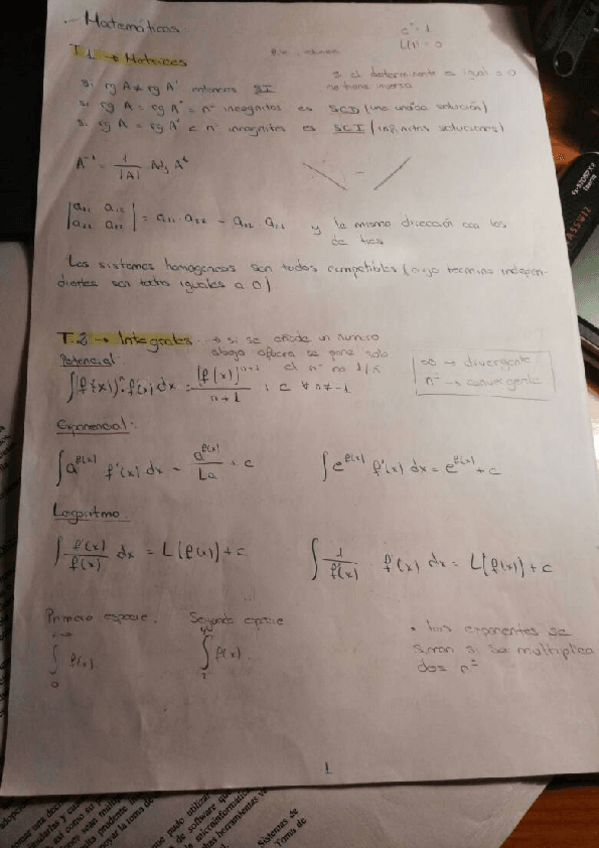 .- Matemáticas
e⁰ = 1
L(1) = 0
T.1 → Matrices
si el determinante es igual a 0
no tiene inversa
si rg A ≠ rg A' entonces SI
si rg A = rg A' = nº incognitas es SCD (una unica solución)
si rg A = rg A' < nº incognitas es SCI (infinitas soluciones)
A⁻¹ = 1/|A| · Adj Aᵗ
y la misma dirección con los
de tres
Los sistemas homogeneos son todos compatibles (cuyo termino indepen-
dientes son todos iguales a 0)
T.2 → Integrales → si se añade un numero
abajo afuera se pone solo
el nº no 1/n
Potencial:
∫(f(x))ⁿ · f'(x) dx = (f(x))ⁿ⁺¹/n+1 + c ∀ n ≠ -1
∞ → divergente
nº → convergente
Exponencial:
∫a^f(x) f'(x) dx = a^f(x)/La + c
∫e^f(x) f'(x) dx = e^f(x) + c
Logaritmo
∫f'(x)/f(x) dx = L(f(x)) + c
∫1/f(x) · f'(x) dx = L(f(x)) + c
Primera especie.
Segunda especie
f(x)
∫f(x)
• Los exponentes se
suman si se multiplica
dos nº
1